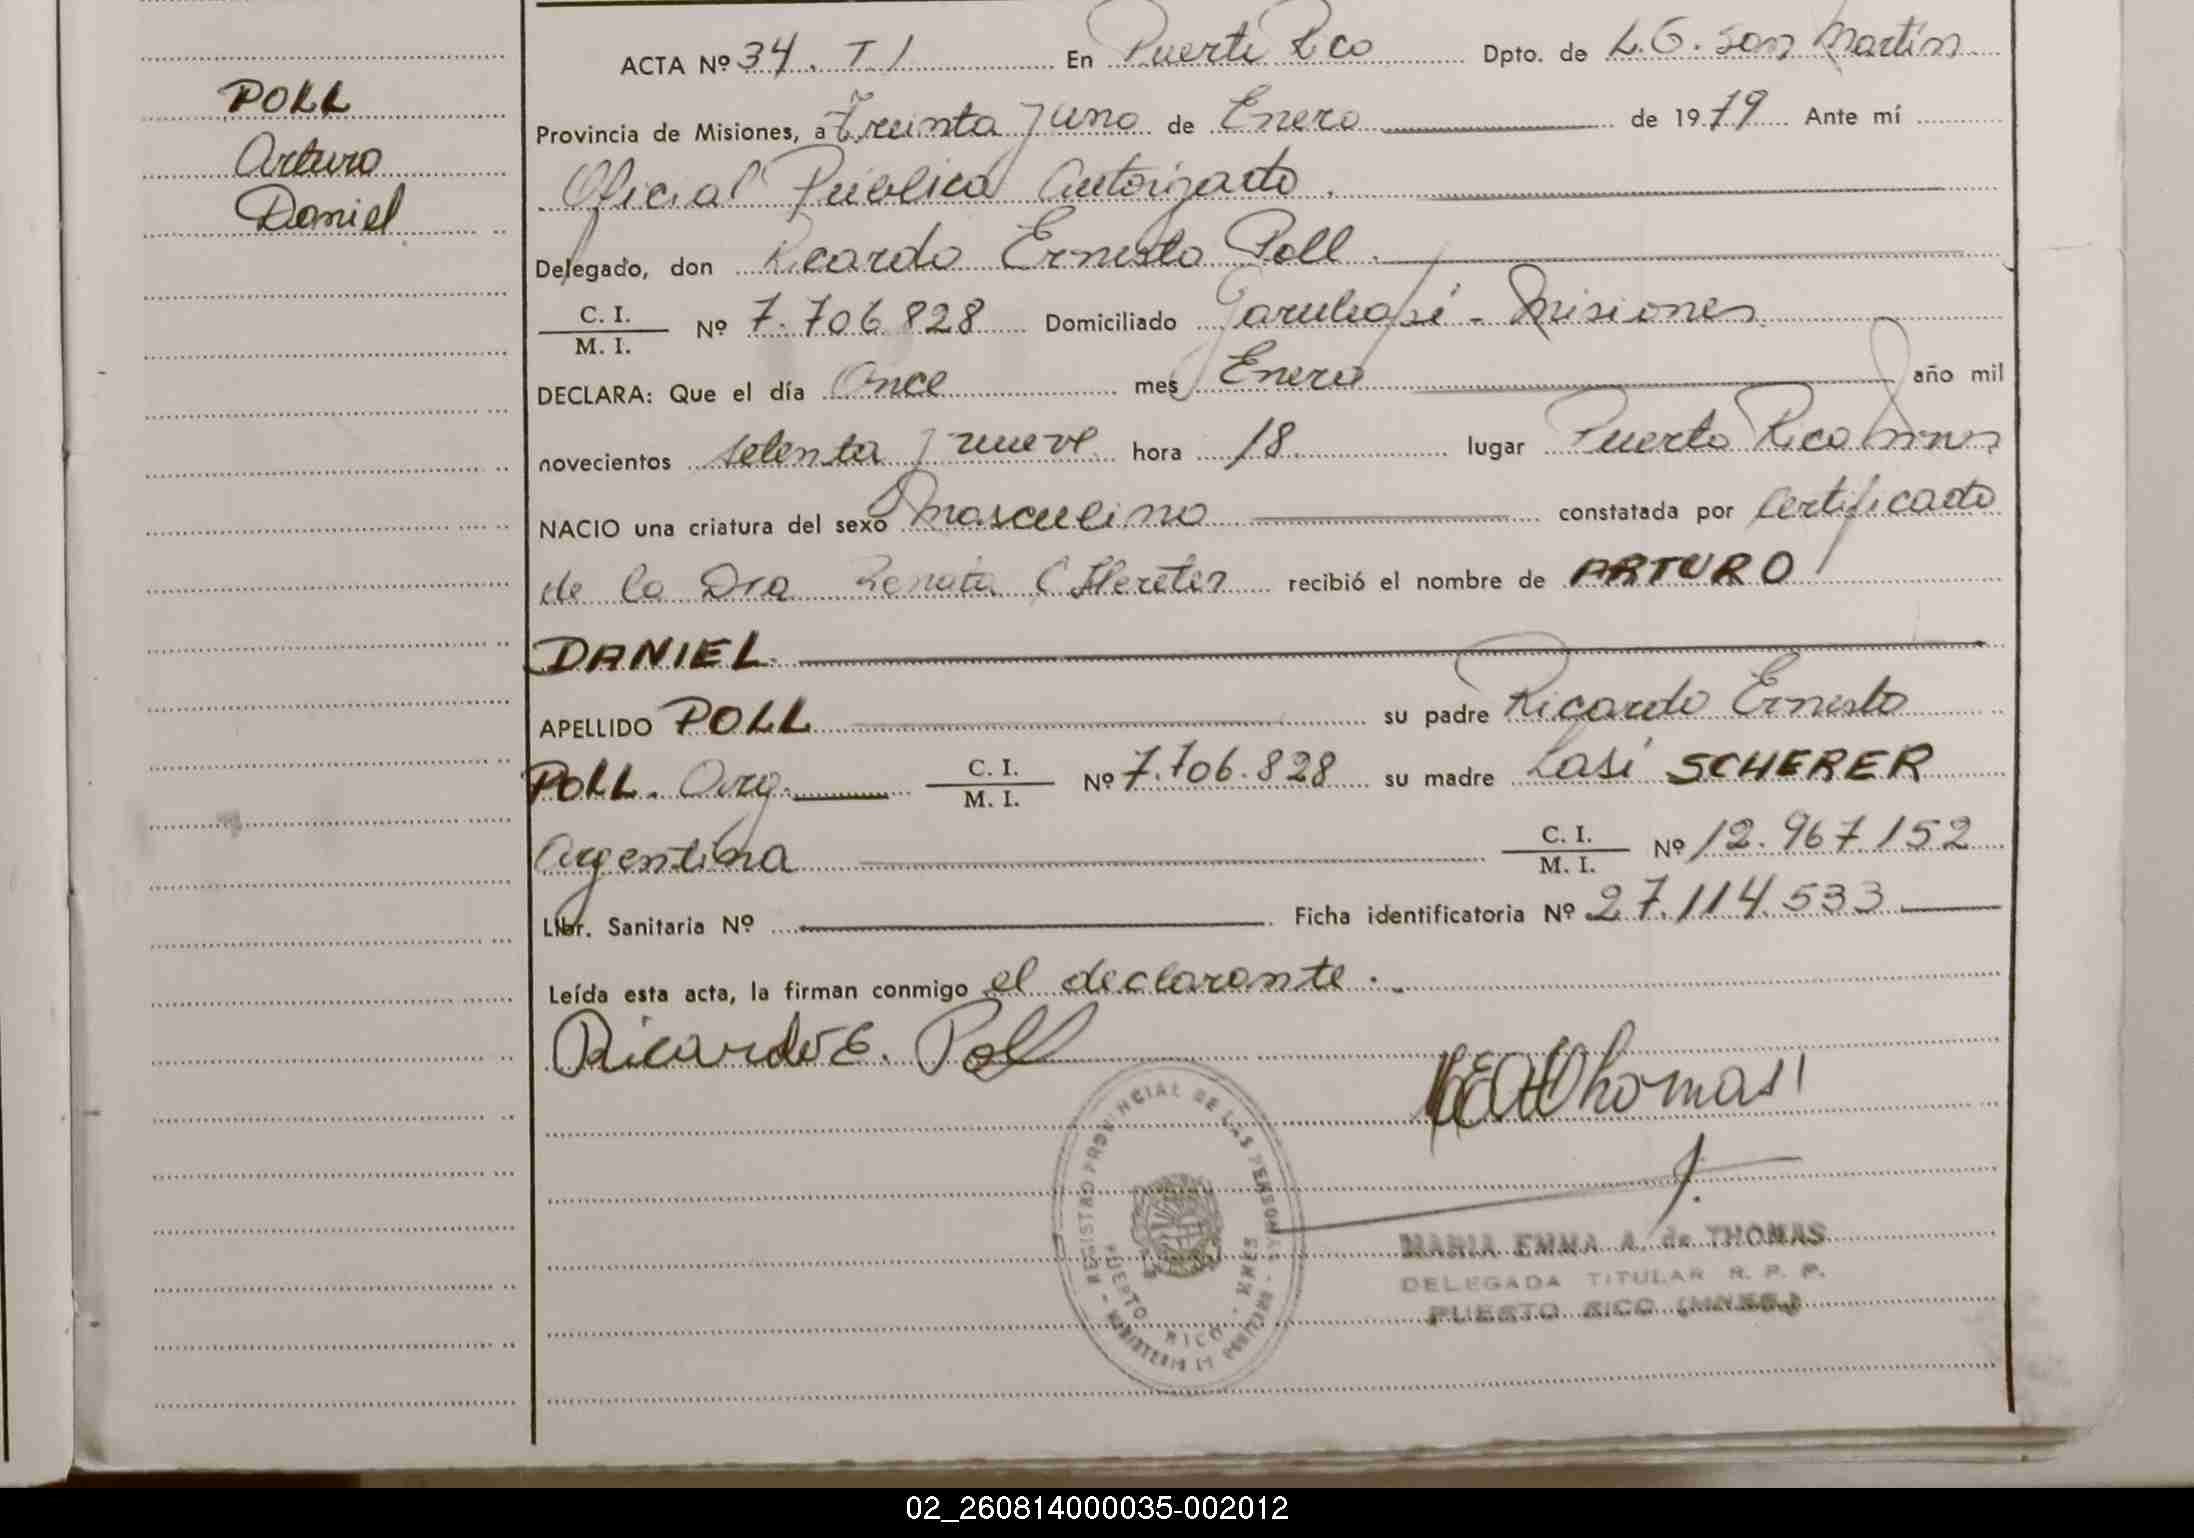 POLL
Arturo
Daniel
ACTA Nº 34. T I En Puerto Rico Dpto. de L. G. San Martín
Provincia de Misiones, a Treinta y uno de Enero de 1979 Ante mí
Oficial Público Autorizado.
Delegado, don Ricardo Ernesto Poll.
C. I.
M. I. Nº 7.706.828 Domiciliado Garuhapé - Misiones
DECLARA: Que el día Once mes Enero año mil
novecientos setenta y nueve hora 18 lugar Puerto Rico Mnes
NACIO una criatura del sexo Masculino constatada por Certificado
de la Dra Renata C. recibió el nombre de ARTURO
DANIEL
APELLIDO POLL su padre Ricardo Ernesto
POLL. Arg. C. I.
M. I. Nº 7.706.828 su madre SCHERER
Argentina C. I.
M. I. Nº 12.967.152
Libr. Sanitaria Nº Ficha identificatoria Nº 27.114.533
Leída esta acta, la firman conmigo el declarante.
Ricardo E. Poll
Thomas
REGISTRO PROVINCIAL DE LAS PERSONAS
PUERTO RICO - MNES
MARIA EMMA A. de THOMAS
DELEGADA TITULAR R. P. P.
PUERTO RICO (MNES.)
02_260814000035-002012